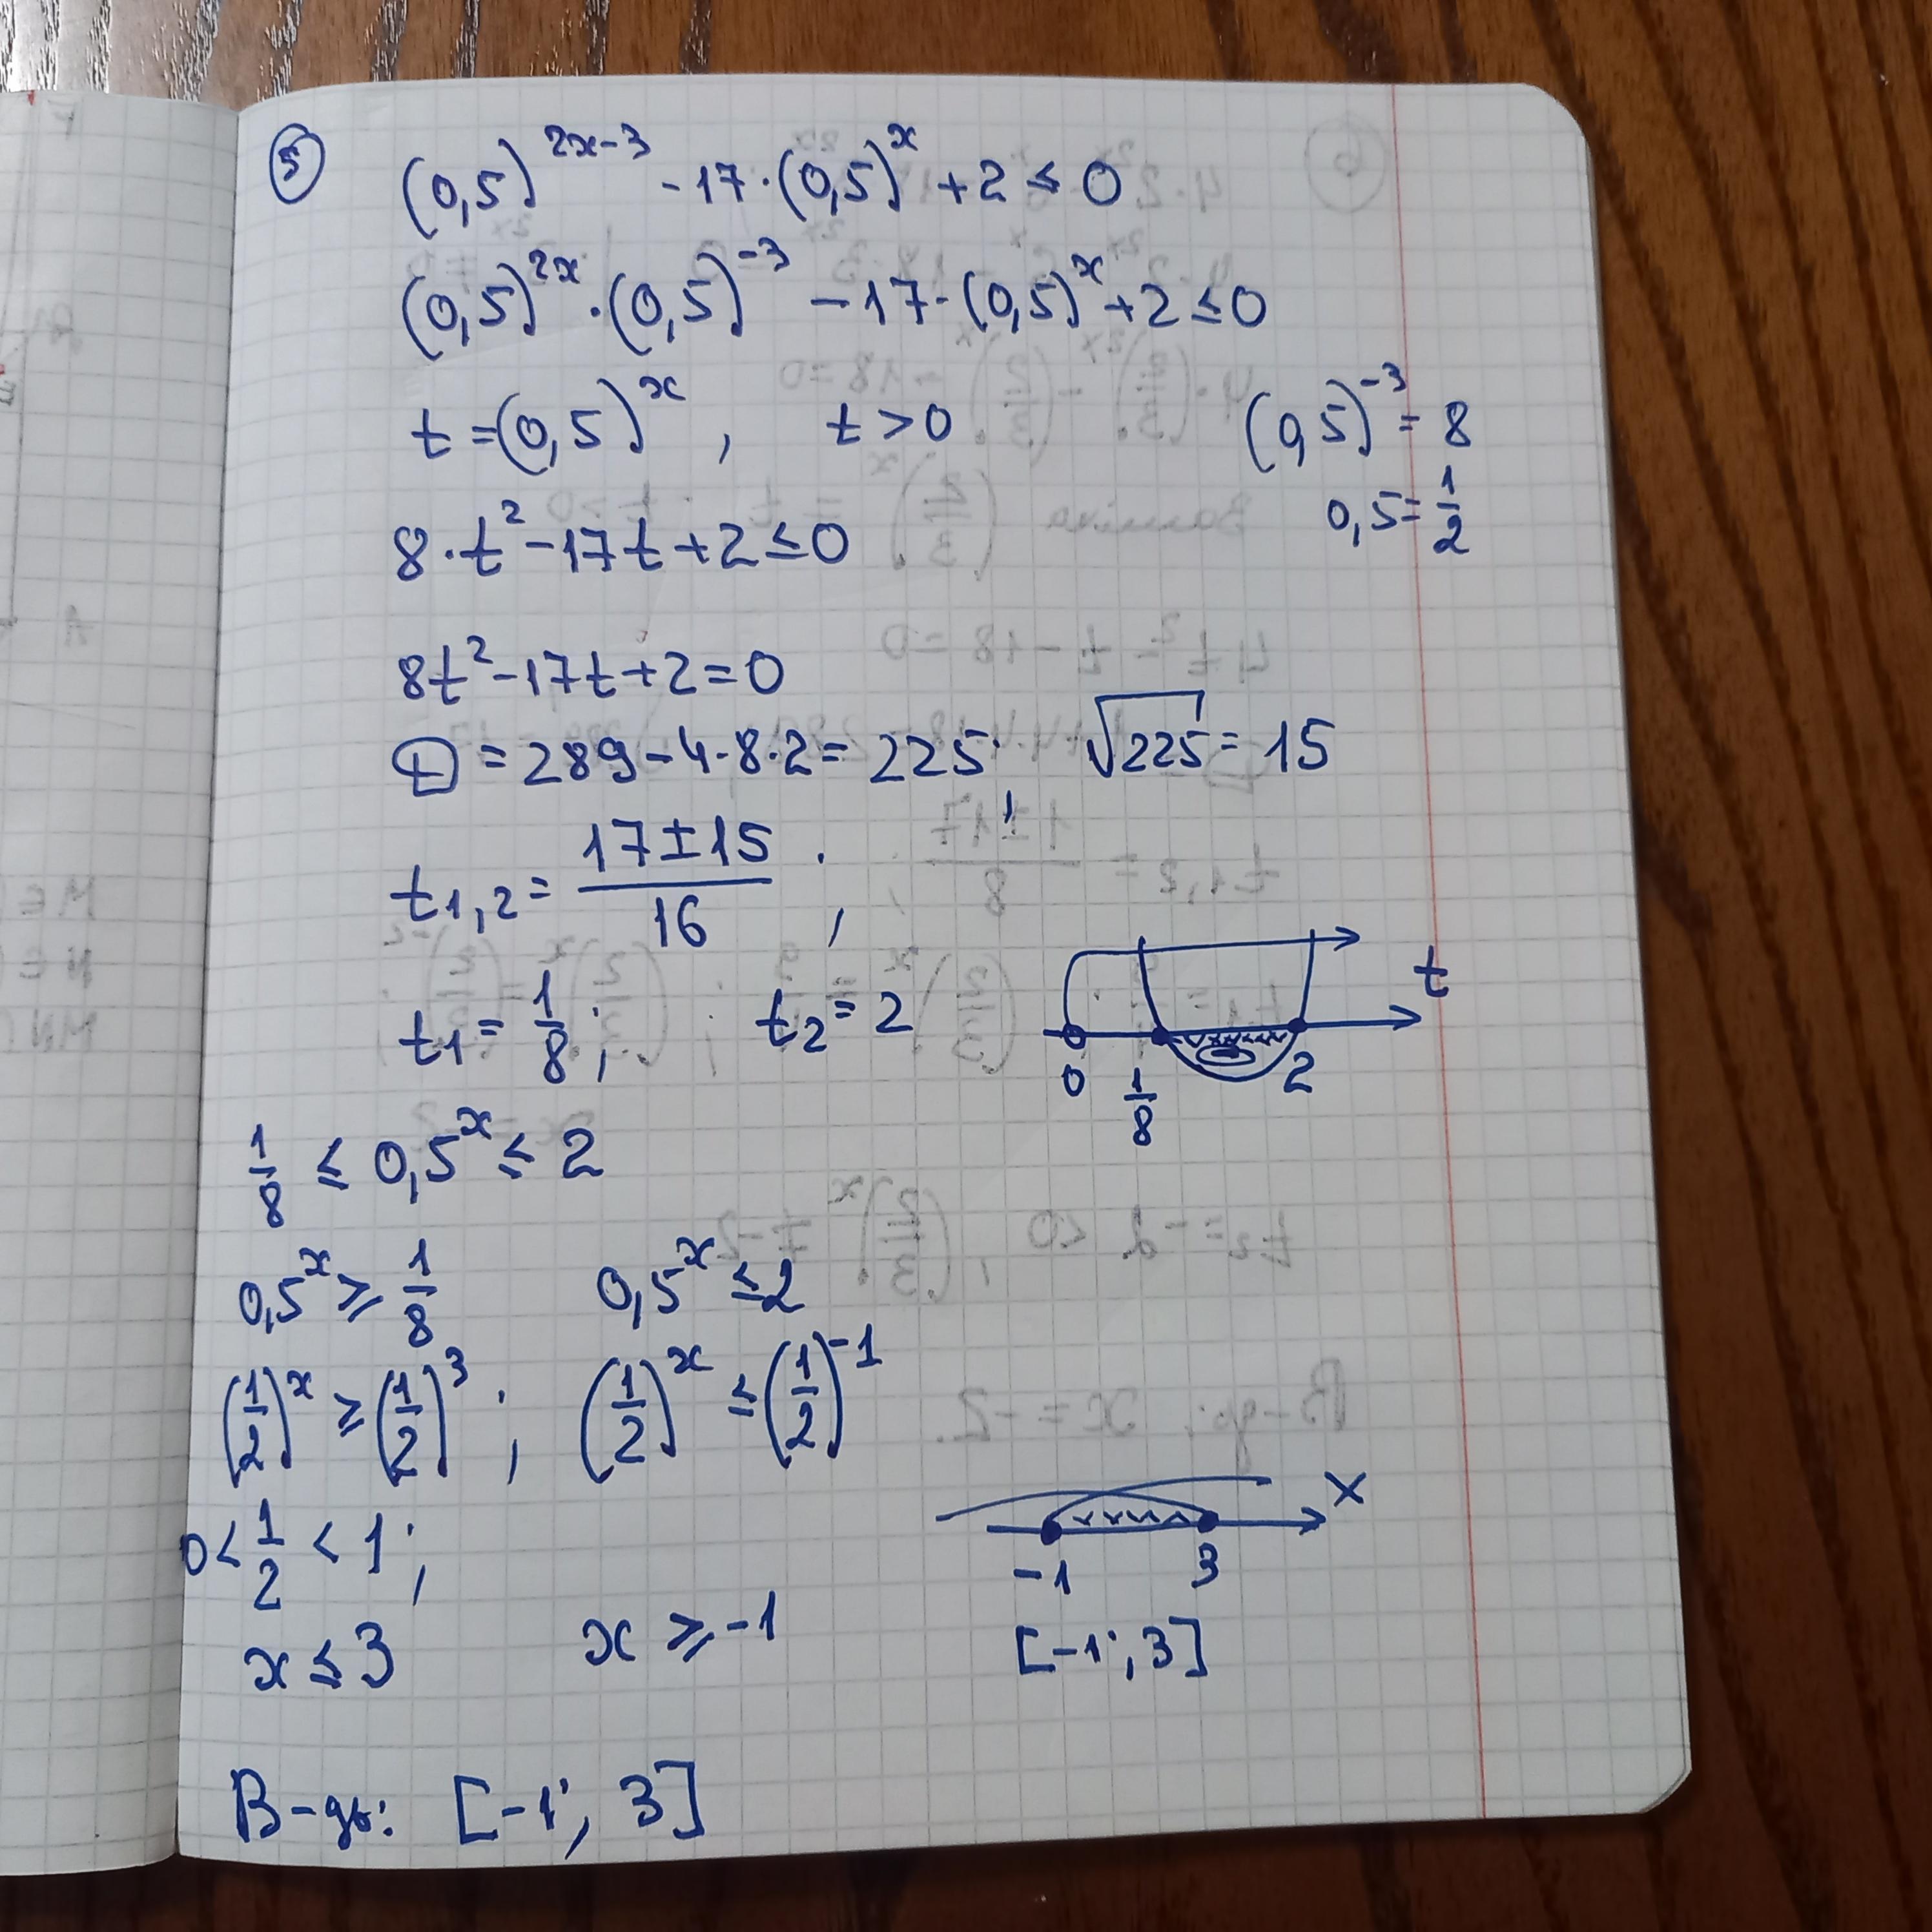 5 (0,5)^(2x-3) - 17·(0,5)^x + 2 ≤ 0
(0,5)^(2x)·(0,5)^(-3) - 17·(0,5)^x + 2 ≤ 0
t = (0,5)^x, t > 0 (0,5)^(-3) = 8
0,5 = 1/2
8·t² - 17t + 2 ≤ 0
8t² - 17t + 2 = 0
D = 289 - 4·8·2 = 225; √225 = 15
t1,2 = (17 ± 15)/16;
t1 = 1/8; t2 = 2
t
0 1/8 2
1/8 ≤ 0,5^x ≤ 2
0,5^x ≥ 1/8 0,5^x ≤ 2
(1/2)^x ≥ (1/2)^3; (1/2)^x ≤ (1/2)^(-1)
x
0 < 1/2 < 1;
-1 3
x ≤ 3 x ≥ -1 [-1; 3]
В-дь: [-1; 3]